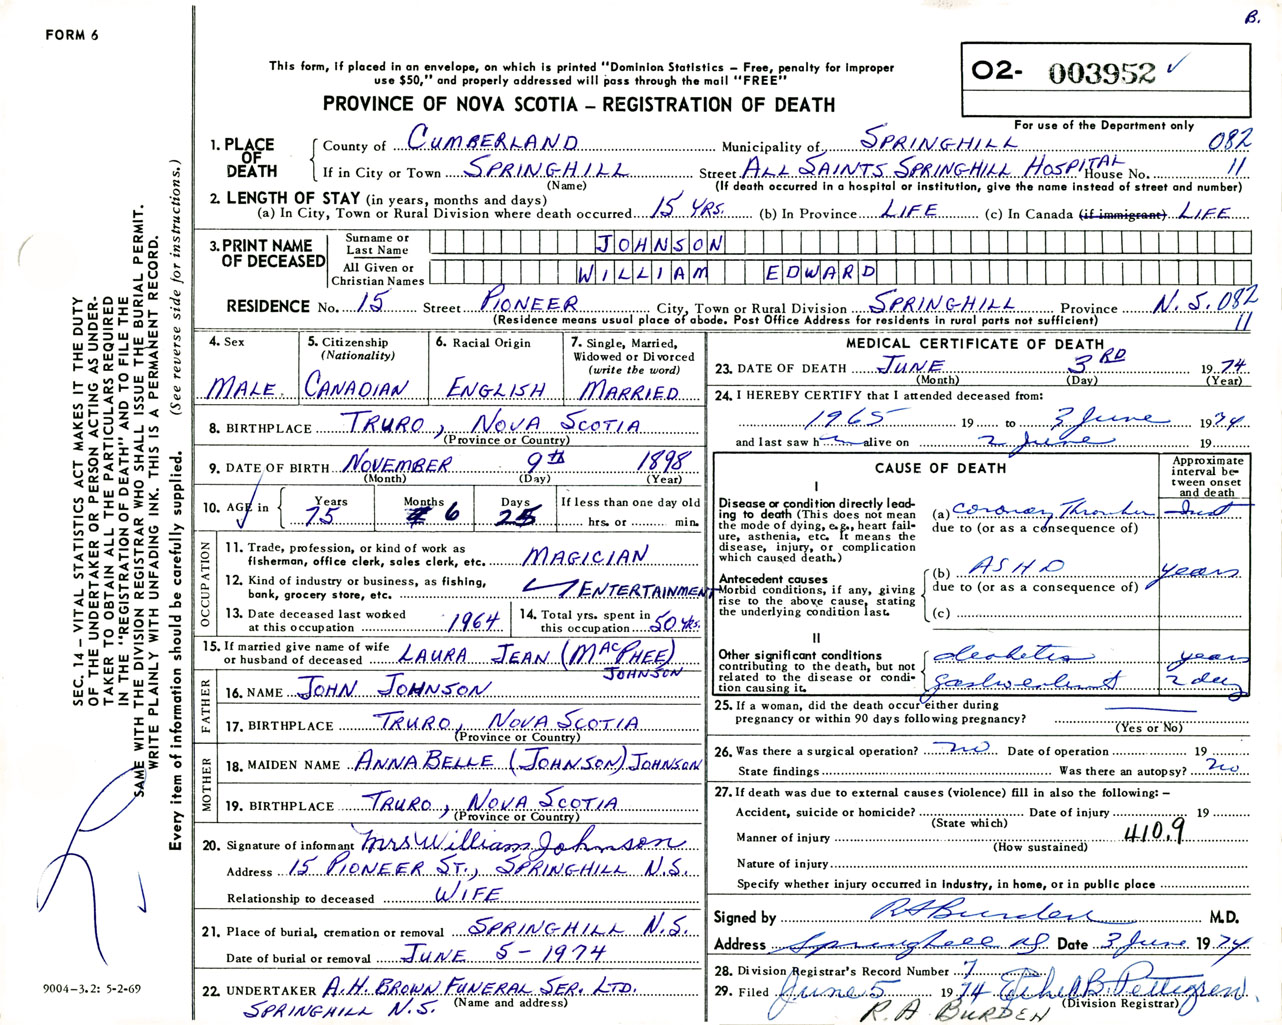 B.
FORM 6
This form, if placed in an envelope, on which is printed "Dominion Statistics – Free, penalty for improper
use $50," and properly addressed will pass through the mail "FREE"
PROVINCE OF NOVA SCOTIA – REGISTRATION OF DEATH
O2- 003952 ✓
For use of the Department only
SEC. 14 – VITAL STATISTICS ACT MAKES IT THE DUTY
OF THE UNDERTAKER OR PERSON ACTING AS UNDER-
TAKER TO OBTAIN ALL THE PARTICULARS REQUIRED
IN THE "REGISTRATION OF DEATH" AND TO FILE THE
SAME WITH THE DIVISION REGISTRAR WHO SHALL ISSUE THE BURIAL PERMIT.
WRITE PLAINLY WITH UNFADING INK. THIS IS A PERMANENT RECORD.
Every item of information should be carefully supplied. (See reverse side for instructions.)
1. PLACE OF DEATH
County of CUMBERLAND Municipality of SPRINGHILL 082
If in City or Town SPRINGHILL Street ALL SAINTS SPRINGHILL HOSPITAL House No. 11
(Name) (If death occurred in a hospital or institution, give the name instead of street and number)
2. LENGTH OF STAY (in years, months and days)
(a) In City, Town or Rural Division where death occurred 15 YRS. (b) In Province LIFE (c) In Canada (if immigrant) LIFE
3. PRINT NAME OF DECEASED
Surname or Last Name JOHNSON
All Given or Christian Names WILLIAM EDWARD
RESIDENCE No. 15 Street PIONEER City, Town or Rural Division SPRINGHILL Province N.S. 082
(Residence means usual place of abode. Post Office Address for residents in rural parts not sufficient) 11
4. Sex MALE
5. Citizenship (Nationality) CANADIAN
6. Racial Origin ENGLISH
7. Single, Married, Widowed or Divorced (write the word) MARRIED
8. BIRTHPLACE TRURO, NOVA SCOTIA
(Province or Country)
9. DATE OF BIRTH NOVEMBER 9TH 1898
(Month) (Day) (Year)
10. AGE in Years 75 Months 6 Days 25 If less than one day old hrs. or min.
OCCUPATION
11. Trade, profession, or kind of work as
fisherman, office clerk, sales clerk, etc. MAGICIAN
12. Kind of industry or business, as fishing,
bank, grocery store, etc. ENTERTAINMENT
13. Date deceased last worked
at this occupation 1964
14. Total yrs. spent in
this occupation 50 YRS.
15. If married give name of wife
or husband of deceased LAURA JEAN (MACPHEE)
JOHNSON
FATHER
16. NAME JOHN JOHNSON
17. BIRTHPLACE TRURO, NOVA SCOTIA
(Province or Country)
MOTHER
18. MAIDEN NAME ANNABELLE (JOHNSON) JOHNSON
19. BIRTHPLACE TRURO, NOVA SCOTIA
(Province or Country)
20. Signature of informant Mrs William Johnson
Address 15 PIONEER ST., SPRINGHILL N.S.
Relationship to deceased WIFE
21. Place of burial, cremation or removal SPRINGHILL N.S.
Date of burial or removal JUNE 5 - 1974
22. UNDERTAKER A.H. BROWN FUNERAL SER. LTD.
(Name and address)
SPRINGHILL N.S.
MEDICAL CERTIFICATE OF DEATH
23. DATE OF DEATH JUNE 3RD 1974
(Month) (Day) (Year)
24. I HEREBY CERTIFY that I attended deceased from:
1965 19 to 3 June 1974
and last saw h alive on 2 June 19
CAUSE OF DEATH
Approximate interval be-tween onset and death
I
Disease or condition directly lead-
ing to death (This does not mean
the mode of dying, e.g., heart fail-
ure, asthenia, etc. It means the
disease, injury, or complication
which caused death.)
(a) Coronary Thrombosis
due to (or as a consequence of)
Antecedent causes
Morbid conditions, if any, giving
rise to the above cause, stating
the underlying condition last.
(b) ASHD years
due to (or as a consequence of)
(c)
II
Other significant conditions
contributing to the death, but not
related to the disease or condi-
tion causing it.
diabetes years
2 day
25. If a woman, did the death occur either during
pregnancy or within 90 days following pregnancy?
(Yes or No)
26. Was there a surgical operation? no Date of operation 19
State findings Was there an autopsy? no
27. If death was due to external causes (violence) fill in also the following: –
Accident, suicide or homicide? Date of injury 19
(State which)
Manner of injury 410.9
(How sustained)
Nature of injury
Specify whether injury occurred in industry, in home, or in public place
Signed by RABurden M.D.
Address Springhill NS Date 3 June 1974
28. Division Registrar's Record Number 7
29. Filed June 5 1974 Ethel B. Pettigrew
(Division Registrar)
R. A BURDEN
9004-3.2: 5-2-69